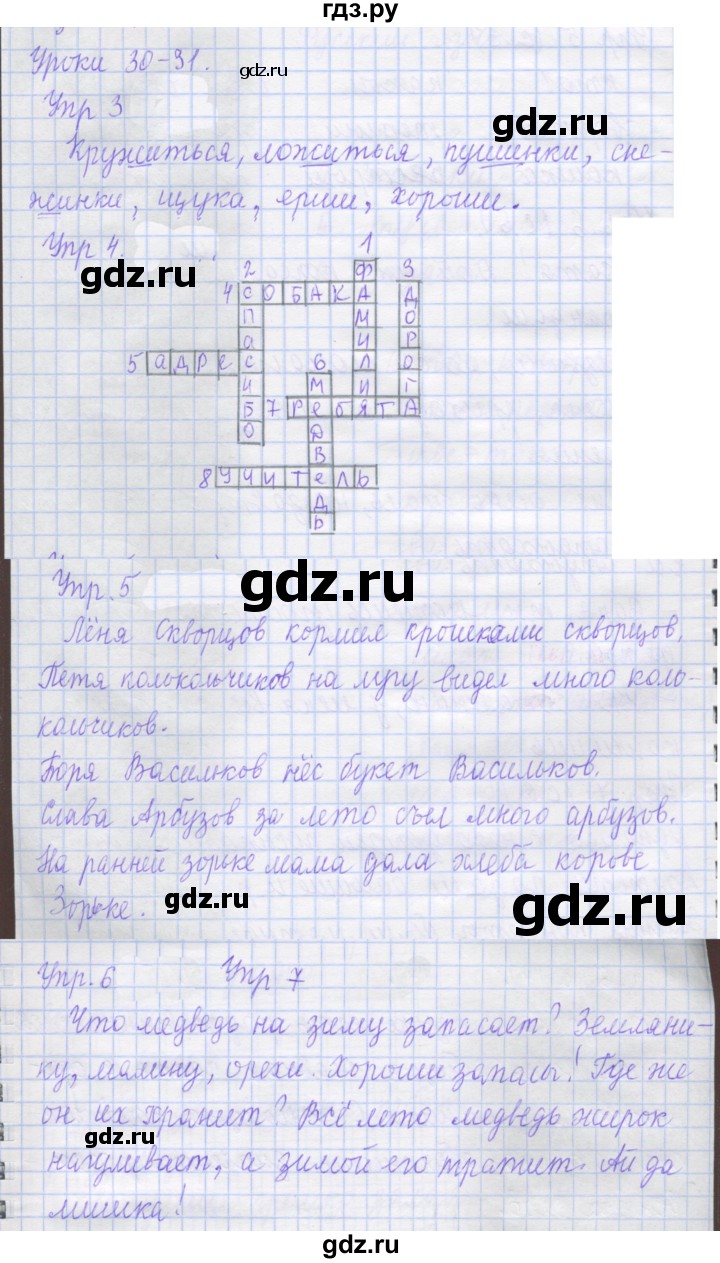 гдз.ру
Уроки 30-31.
gdz.ru
Упр 3
gdz.ru
Кружиться, ложиться, пушинки, сне-
жинки, щука, ерши, хороши.
Упр 4.
gdz.ru
1
2 Ф 3
4 СОБАКА Д
П М О
А И Р
5 адрес 6 Л О
И М И Г
Б 7 Ребята
О Д
В
8 учитель
Д
Ь
Упр. 5
gdz.ru
Лёня Скворцов кормил крошками скворцов.
Петя колокольчиков на лугу видел много коло-
кольчиков.
Боря Васильков нёс букет Васильков.
Слава Арбузов за лето съел много арбузов.
На ранней зорьке мама дала хлеба корове
Зорьке.
gdz.ru
gdz.ru
Упр. 6 Упр 7
Что медведь на зиму запасает? Земляни-
ку, малину, орехи. Хороши запасы! Где же
он их хранит? Всё лето медведь жирок
gdz.ru
нагуливает, а зимой его тратит. Ай да
мишка!
gdz.ru